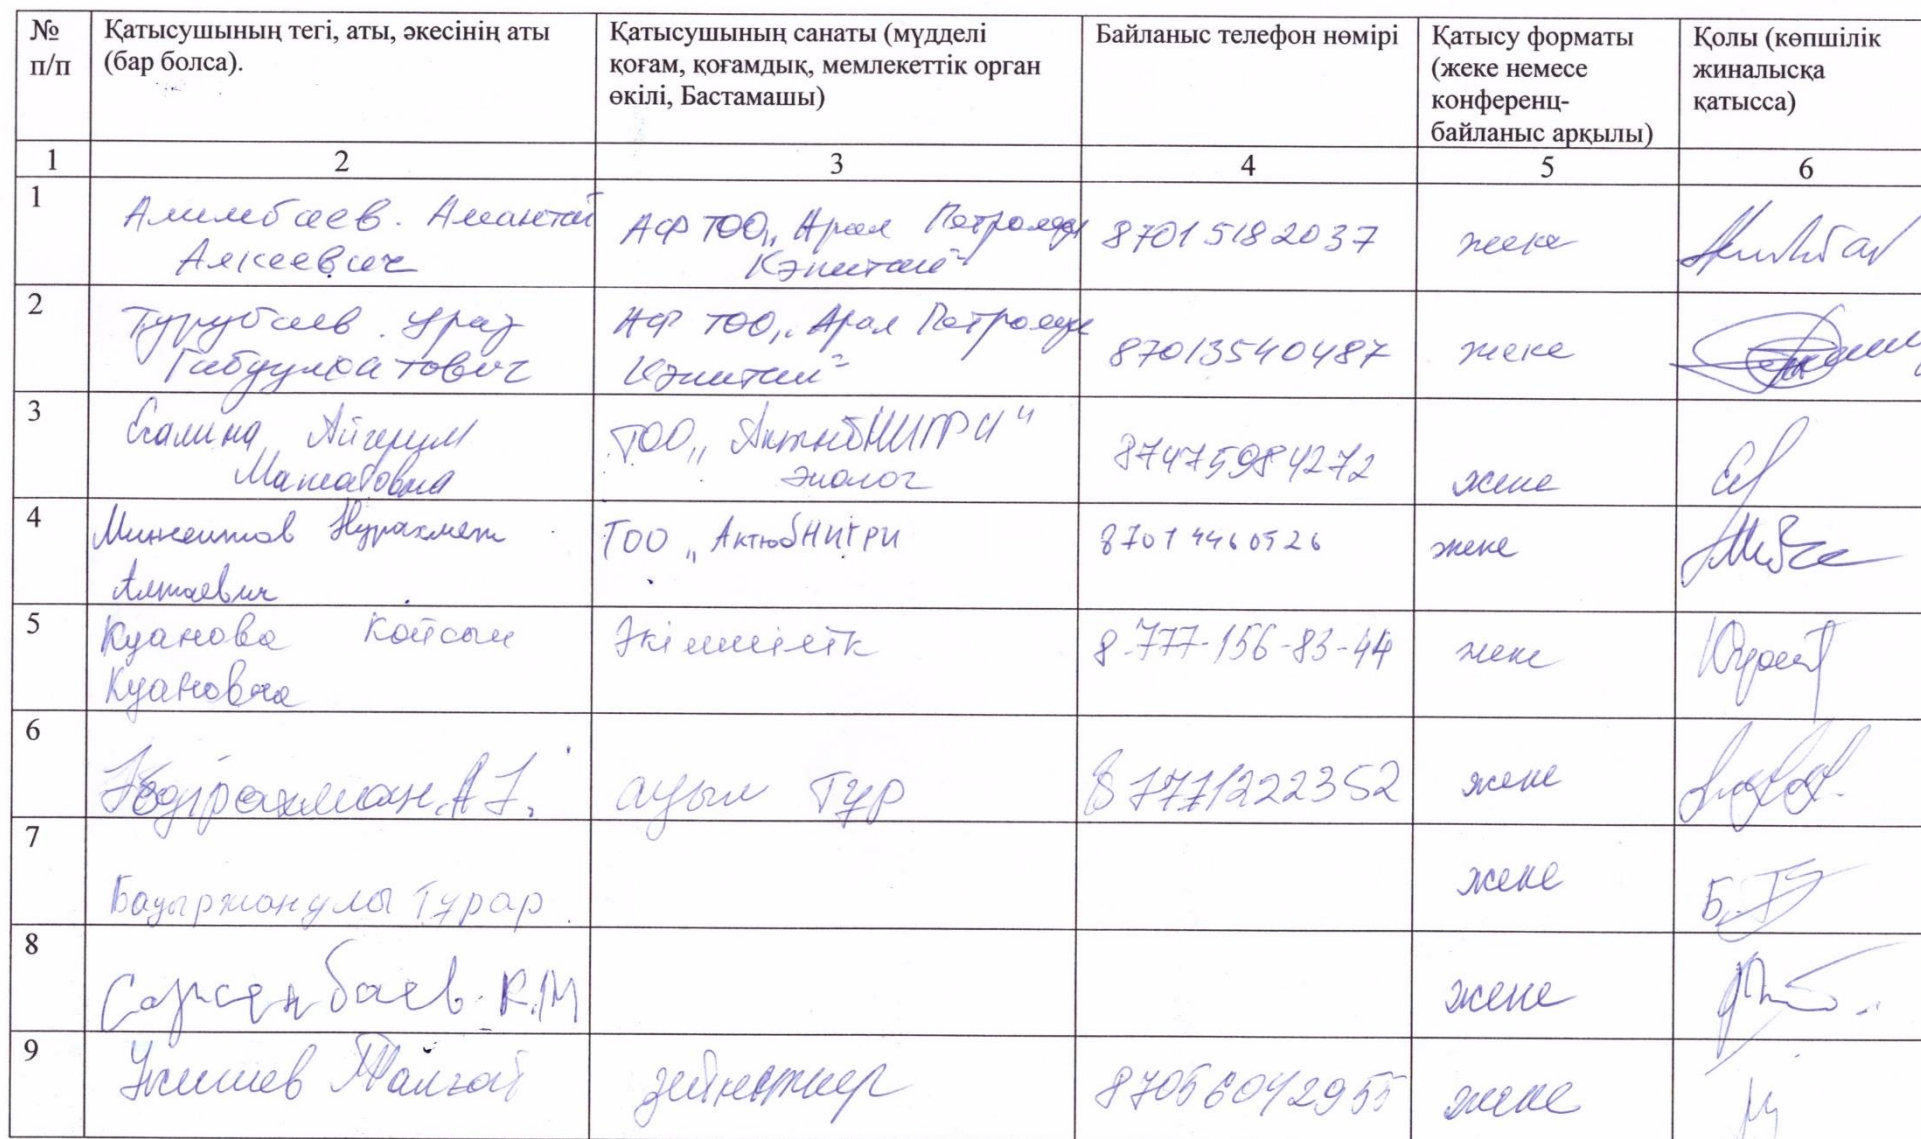 № п/п
Қатысушының тегі, аты, әкесінің аты (бар болса).
Қатысушының санаты (мүдделі қоғам, қоғамдық, мемлекеттік орган өкілі, Бастамашы)
Байланыс телефон нөмірі
Қатысу форматы (жеке немесе конференц-байланыс арқылы)
Қолы (көпшілік жиналысқа қатысса)
1 2 3 4 5 6
1
Алимбаев. Амантай
Алкеевич
АФ ТОО „Арал Петролеум
Кэпитал"
87015182037
жеке
2
Турубаев Ураз
АФ ТОО „Арал Петролеум
Кэпитал"
87013540487
жеке
3
Есалина Айгерим
Маратовна
ТОО „АктюбНИГРИ"
эколог
87475984272
жеке
4
Нурахмет
Алтаевич
ТОО „АктюбНИГРИ
87014460526
жеке
5
Куанова Койсын
Куановна
Әкімшілік
8-777-156-83-44
жеке
6
Әбдірахман А
ауыл тұр
87771222352
жеке
7
Бауыржанулы Турар
жеке
Б.Т
8
Сарсенбаев К.М
жеке
9
Талгат
зейнеткер
87056042955
жеке